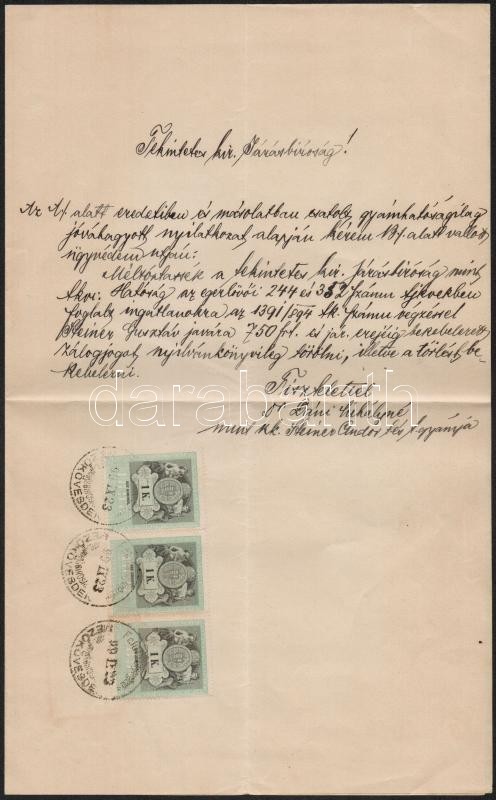 Tekintetes kir. Járásbiróság!
Az A/. alatt eredetiben és másolatban csatolt gyámhatóságilag
jóváhagyott nyilatkozat alapján kérem B/. alatt vallott
ügyvédem utján:
Méltóztassék a tekintetes kir. Járásbiróság mint
tkvi Hatóság az egerlövői 244 és 332 számu tjkvekben
foglalt ingatlanokra az 1391/ számu végzéssel
Steiner Gusztáv javára 750 frt. és jár. erejéig bekebelezett
zálogjogot nyilvánkönyvileg törölni, illetve a törlést be-
kebelezni.
Tisztelettel
Mihályné
mint kk. Steiner Andor gyámja
darabanth
1 K.
99 IX 23
1 K.
99 IX 23
1 K.
99 IX 23